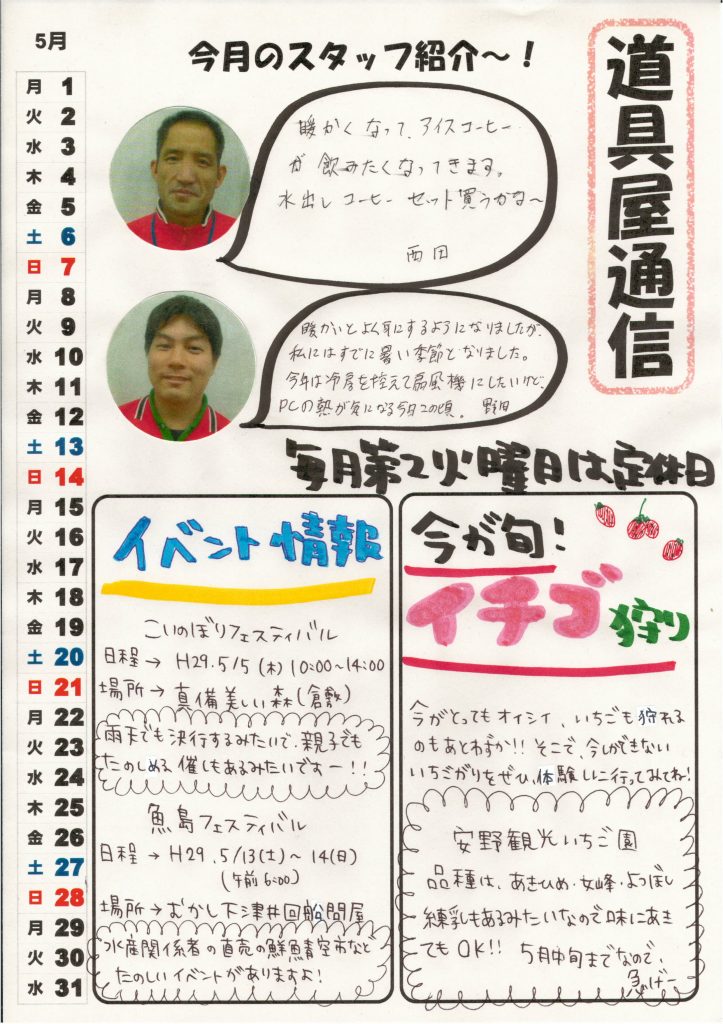 5月
今月のスタッフ紹介～！
道具屋通信
月 1
火 2
水 3
木 4
金 5
土 6
日 7
月 8
火 9
水 10
木 11
金 12
土 13
日 14
月 15
火 16
水 17
木 18
金 19
土 20
日 21
月 22
火 23
水 24
木 25
金 26
土 27
日 28
月 29
火 30
水 31
暖かくなって、アイスコーヒー
が飲みたくなってきます。
水出しコーヒーセット買うかな～
西田
暖かいとよく耳にするようになりましたが、
私にはすでに暑い季節となりました。
今年は冷房を控えて扇風機にしたいけど、
PCの熱が気になる今日この頃。 野田
毎月第2火曜日は定休日
イベント情報
こいのぼりフェスティバル
日程→ H29.5/5(木)10:00～14:00
場所→真備美しい森(倉敷)
雨天でも決行するみたいで、親子でも
たのしめる催しもあるみたいですー！！
魚島フェスティバル
日程→ H29.5/13(土)～14(日)
(午前6:00)
場所→むかし下津井回船問屋
水産関係者の直売の鮮魚青空市など
たのしいイベントがありますよ！
今が旬！
イチゴ狩り
今がとってもオイシイ、いちごも狩れる
のもあとわずか！！そこで、今しかできない
いちごがりをぜひ、体験しに行ってみてね！
安野観光いちご園
品種は、あきひめ・女峰・よつぼし
練乳もあるみたいなので味にあき
てもOK！！ 5月中旬までなので、
急げー